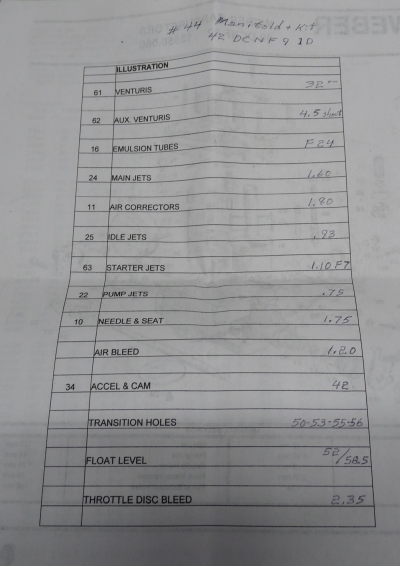 #44 Manifold + Kit
42 DCNF 9 1D
ILLUSTRATION
61 VENTURIS 32
62 AUX. VENTURIS 4.5 short
16 EMULSION TUBES F24
24 MAIN JETS 1.60
11 AIR CORRECTORS 1.80
25 IDLE JETS
63 STARTER JETS 1.10 F7
22 PUMP JETS .75
10 NEEDLE & SEAT 1.75
AIR BLEED 1.20
34 ACCEL & CAM 42
TRANSITION HOLES 50-53-55-56
FLOAT LEVEL 52/58.5
THROTTLE DISC BLEED 2.35